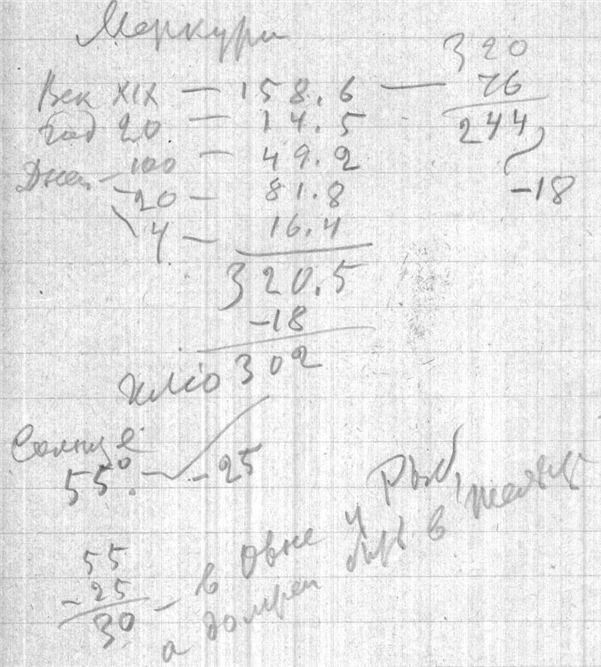 Меркури
Век XIX — 158.6 — 320
76
244
год 20 — 14.5
Дней — 100 — 49.2
-18
20 — 81.8
4 — 16.4
320.5
-18
302
Солнце
55° — -25
55
-25
30 — в Овне и Рыб,
а должен быть в